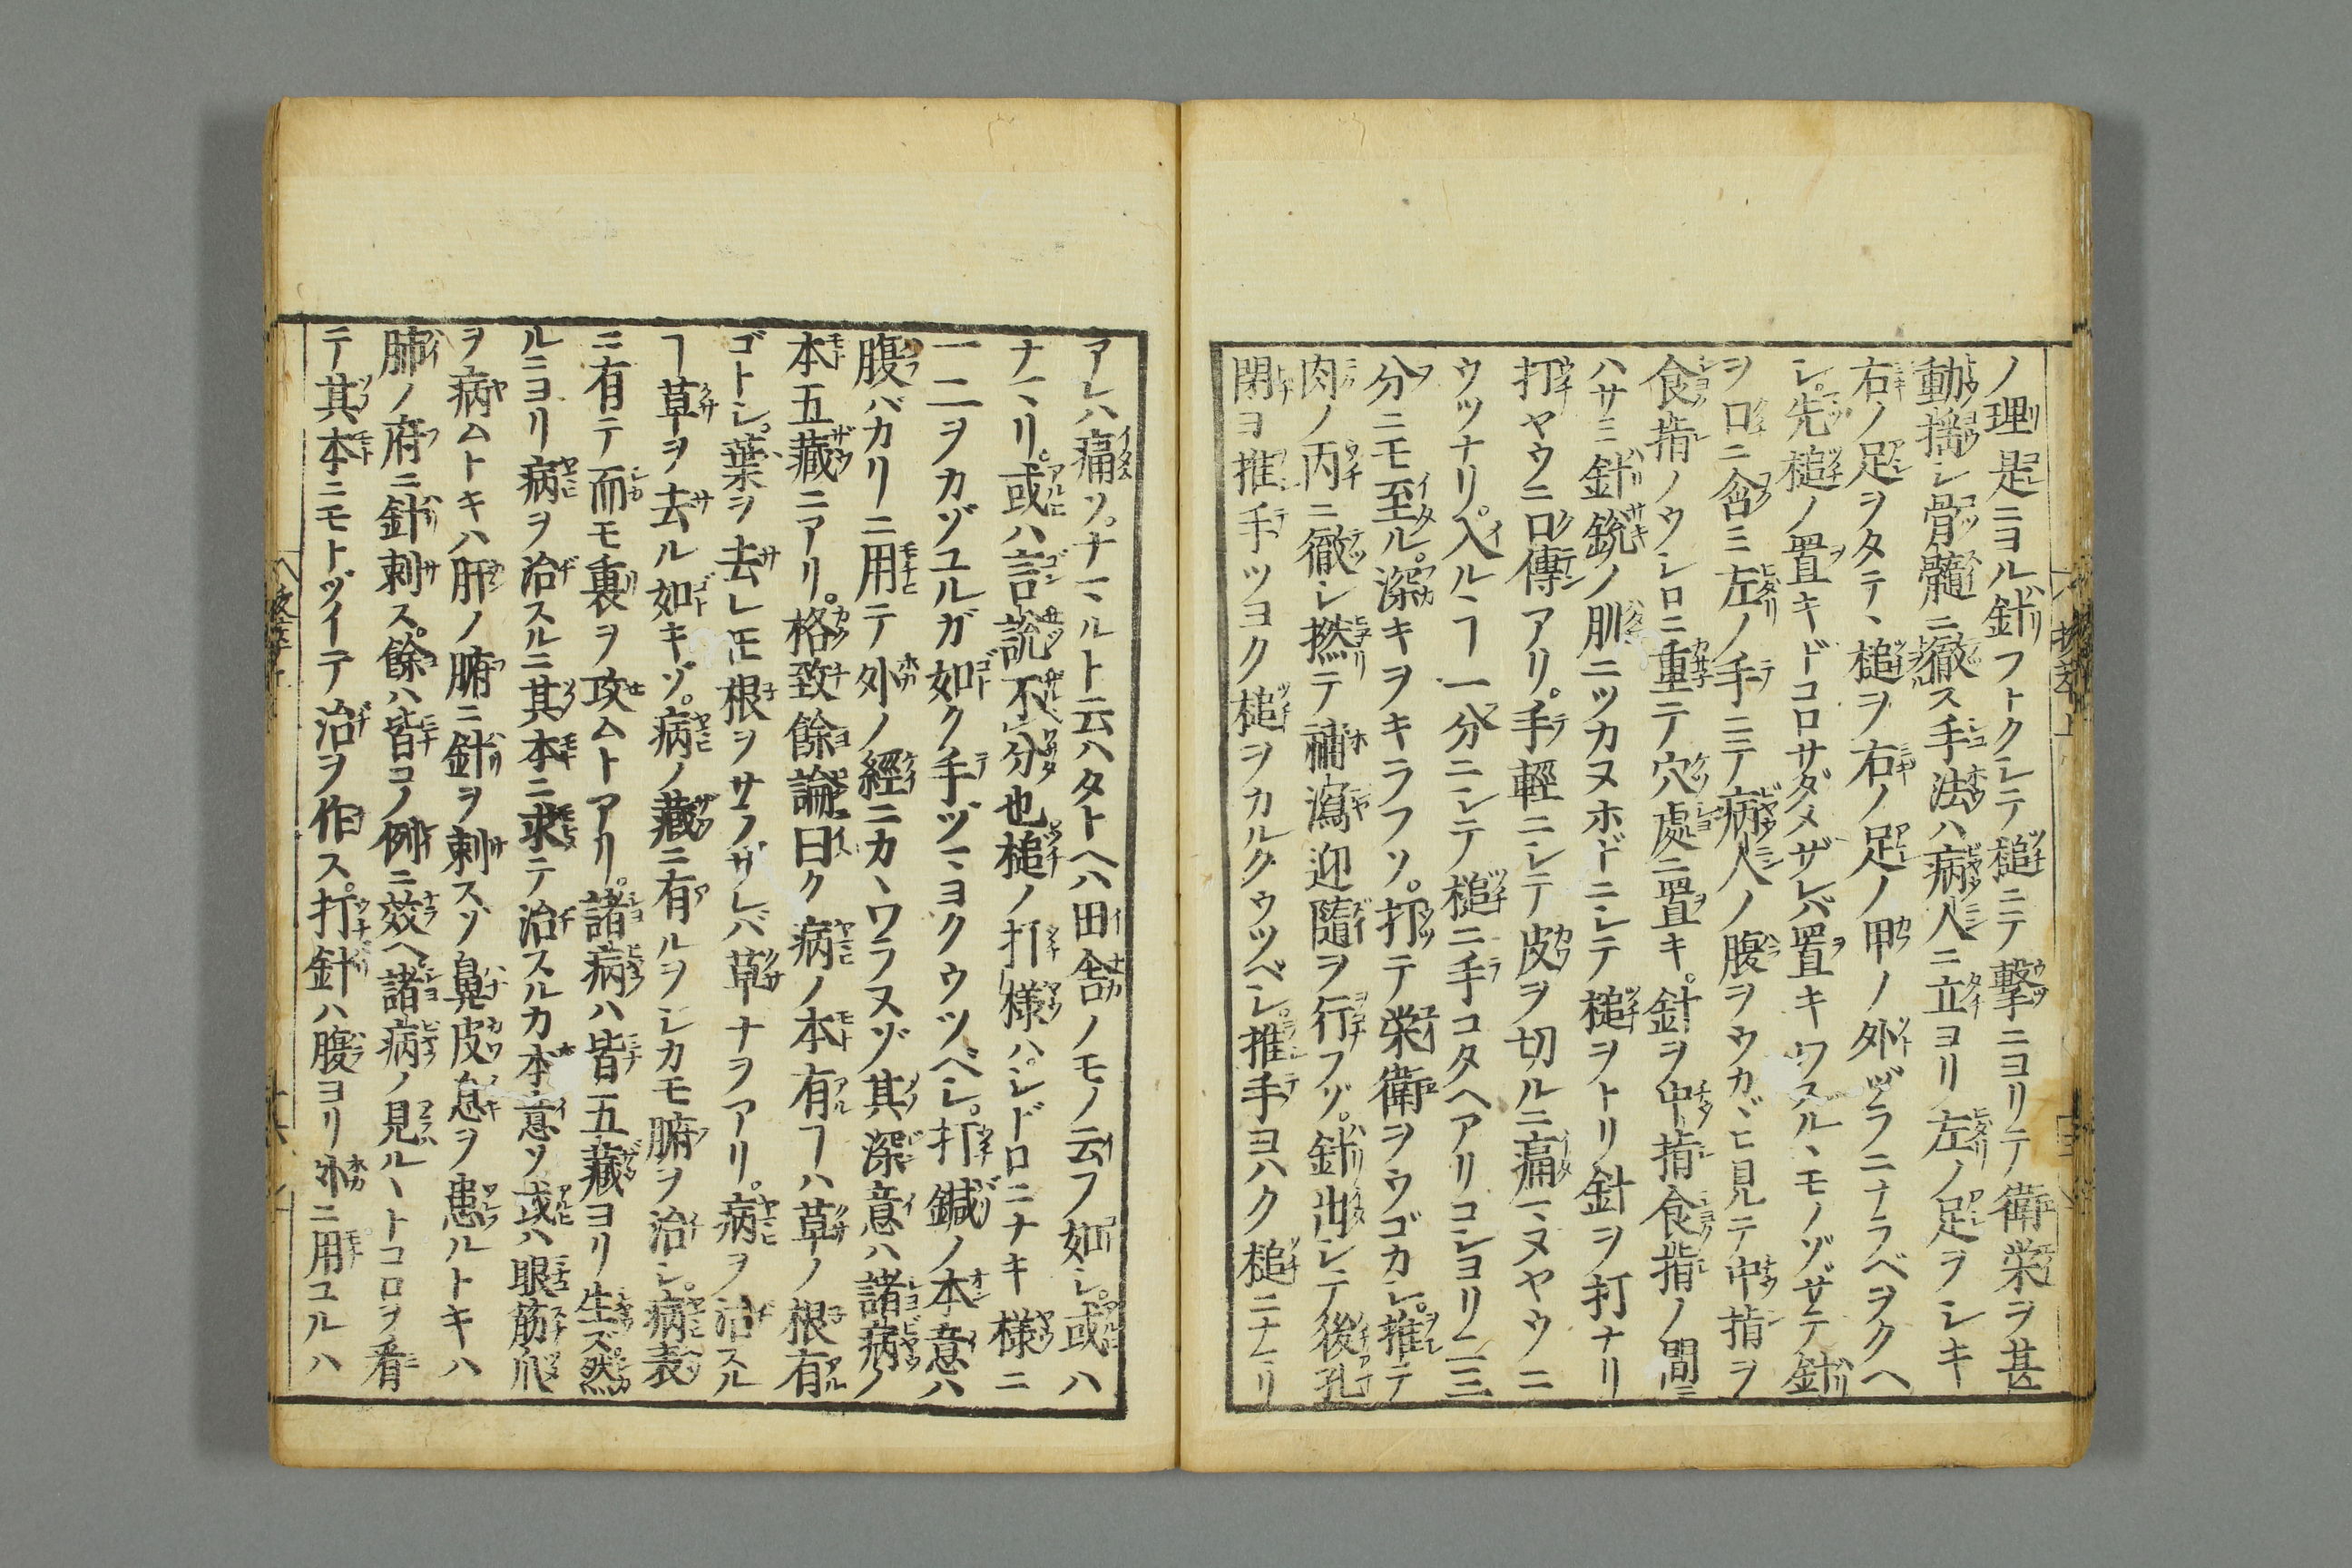 ノ理是ニヨル針フトクシテ槌ニテ撃ニヨリテ衛栄ヲ甚
動揺シ骨髓ニ徹ス手法ハ病人ニ立ヨリ左ノ足ヲシキ
右ノ足ヲタテヽ槌ヲ右ノ足ノ甲ノ外ヅラニナラベヲクヘ
シ。先槌ノ置キドコロサダメザレバ置キワスルヽモノゾサテ針
ヲ口ニ含ミ左ノ手ニテ病人ノ腹ヲウカヾヒ見テ中指ヲ
食指ノウシロニ重テ穴處ニ置キ。針ヲ中指食指ノ間ニ
ハサミ針鋭ノ肌ニツカヌホドニシテ槌ヲトリ針ヲ打ナリ
打ヤウニ口傳アリ。手輕ニシテ皮ヲ切ルニ痛マヌヤウニ
ウツナリ。入ルヽヿ一分ニシテ槌ニ手コタヘアリコシヨリ二三
分ニモ至ル。深キヲキラフソ。打テ栄衛ヲウゴカシ。推テ
肉ノ内ニ徹シ撚テ補瀉迎隨ヲ行フゾ。針出シテ後孔
閉ヨ推手ツヨク槌ヲカルクウツベシ。推手ヨハク槌ニナマリ
アレハ痛ソ。ナマルト云ハタトヘハ田舎ノモノ云フ如シ。或ハ
ナマリ。或ハ言説不分也槌ノ打様ハシドロニナキ様ニ
一二ヲカゾユルガ如ク手ヅマヨクウツベシ。打鍼ノ本意ハ
腹バカリニ用テ外ノ經ニカヽワラヌゾ其深意ハ諸病ノ
本五藏ニアリ。格致餘論曰ク病ノ本有ヿハ草ノ根有
ゴトシ。葉ヲ去レ𪜈根ヲサラザレバ草ナヲアリ。病ヲ治スル
ヿ草ヲ去ル如キゾ。病ノ藏ニ有ルヲシカモ腑ヲ治シ。病表
ニ有テ而モ裏ヲ攻ムトアリ。諸病ハ皆五藏ヨリ生ズ然
ルニヨリ病ヲ治スルニ其本ニ求テ治スルカ本意ソ或ハ眼筋爪
ヲ病ムトキハ肝ノ腑ニ針ヲ刺スゾ鼻皮息ヲ患ルトキハ
肺ノ府ニ針刺ス。餘ハ皆コノ例ニ效ヘ諸病ノ見ルヽトコロヲ看
テ其本ニモトヅイテ治ヲ作ス。打針ハ腹ヨリ外ニ用ユルハ